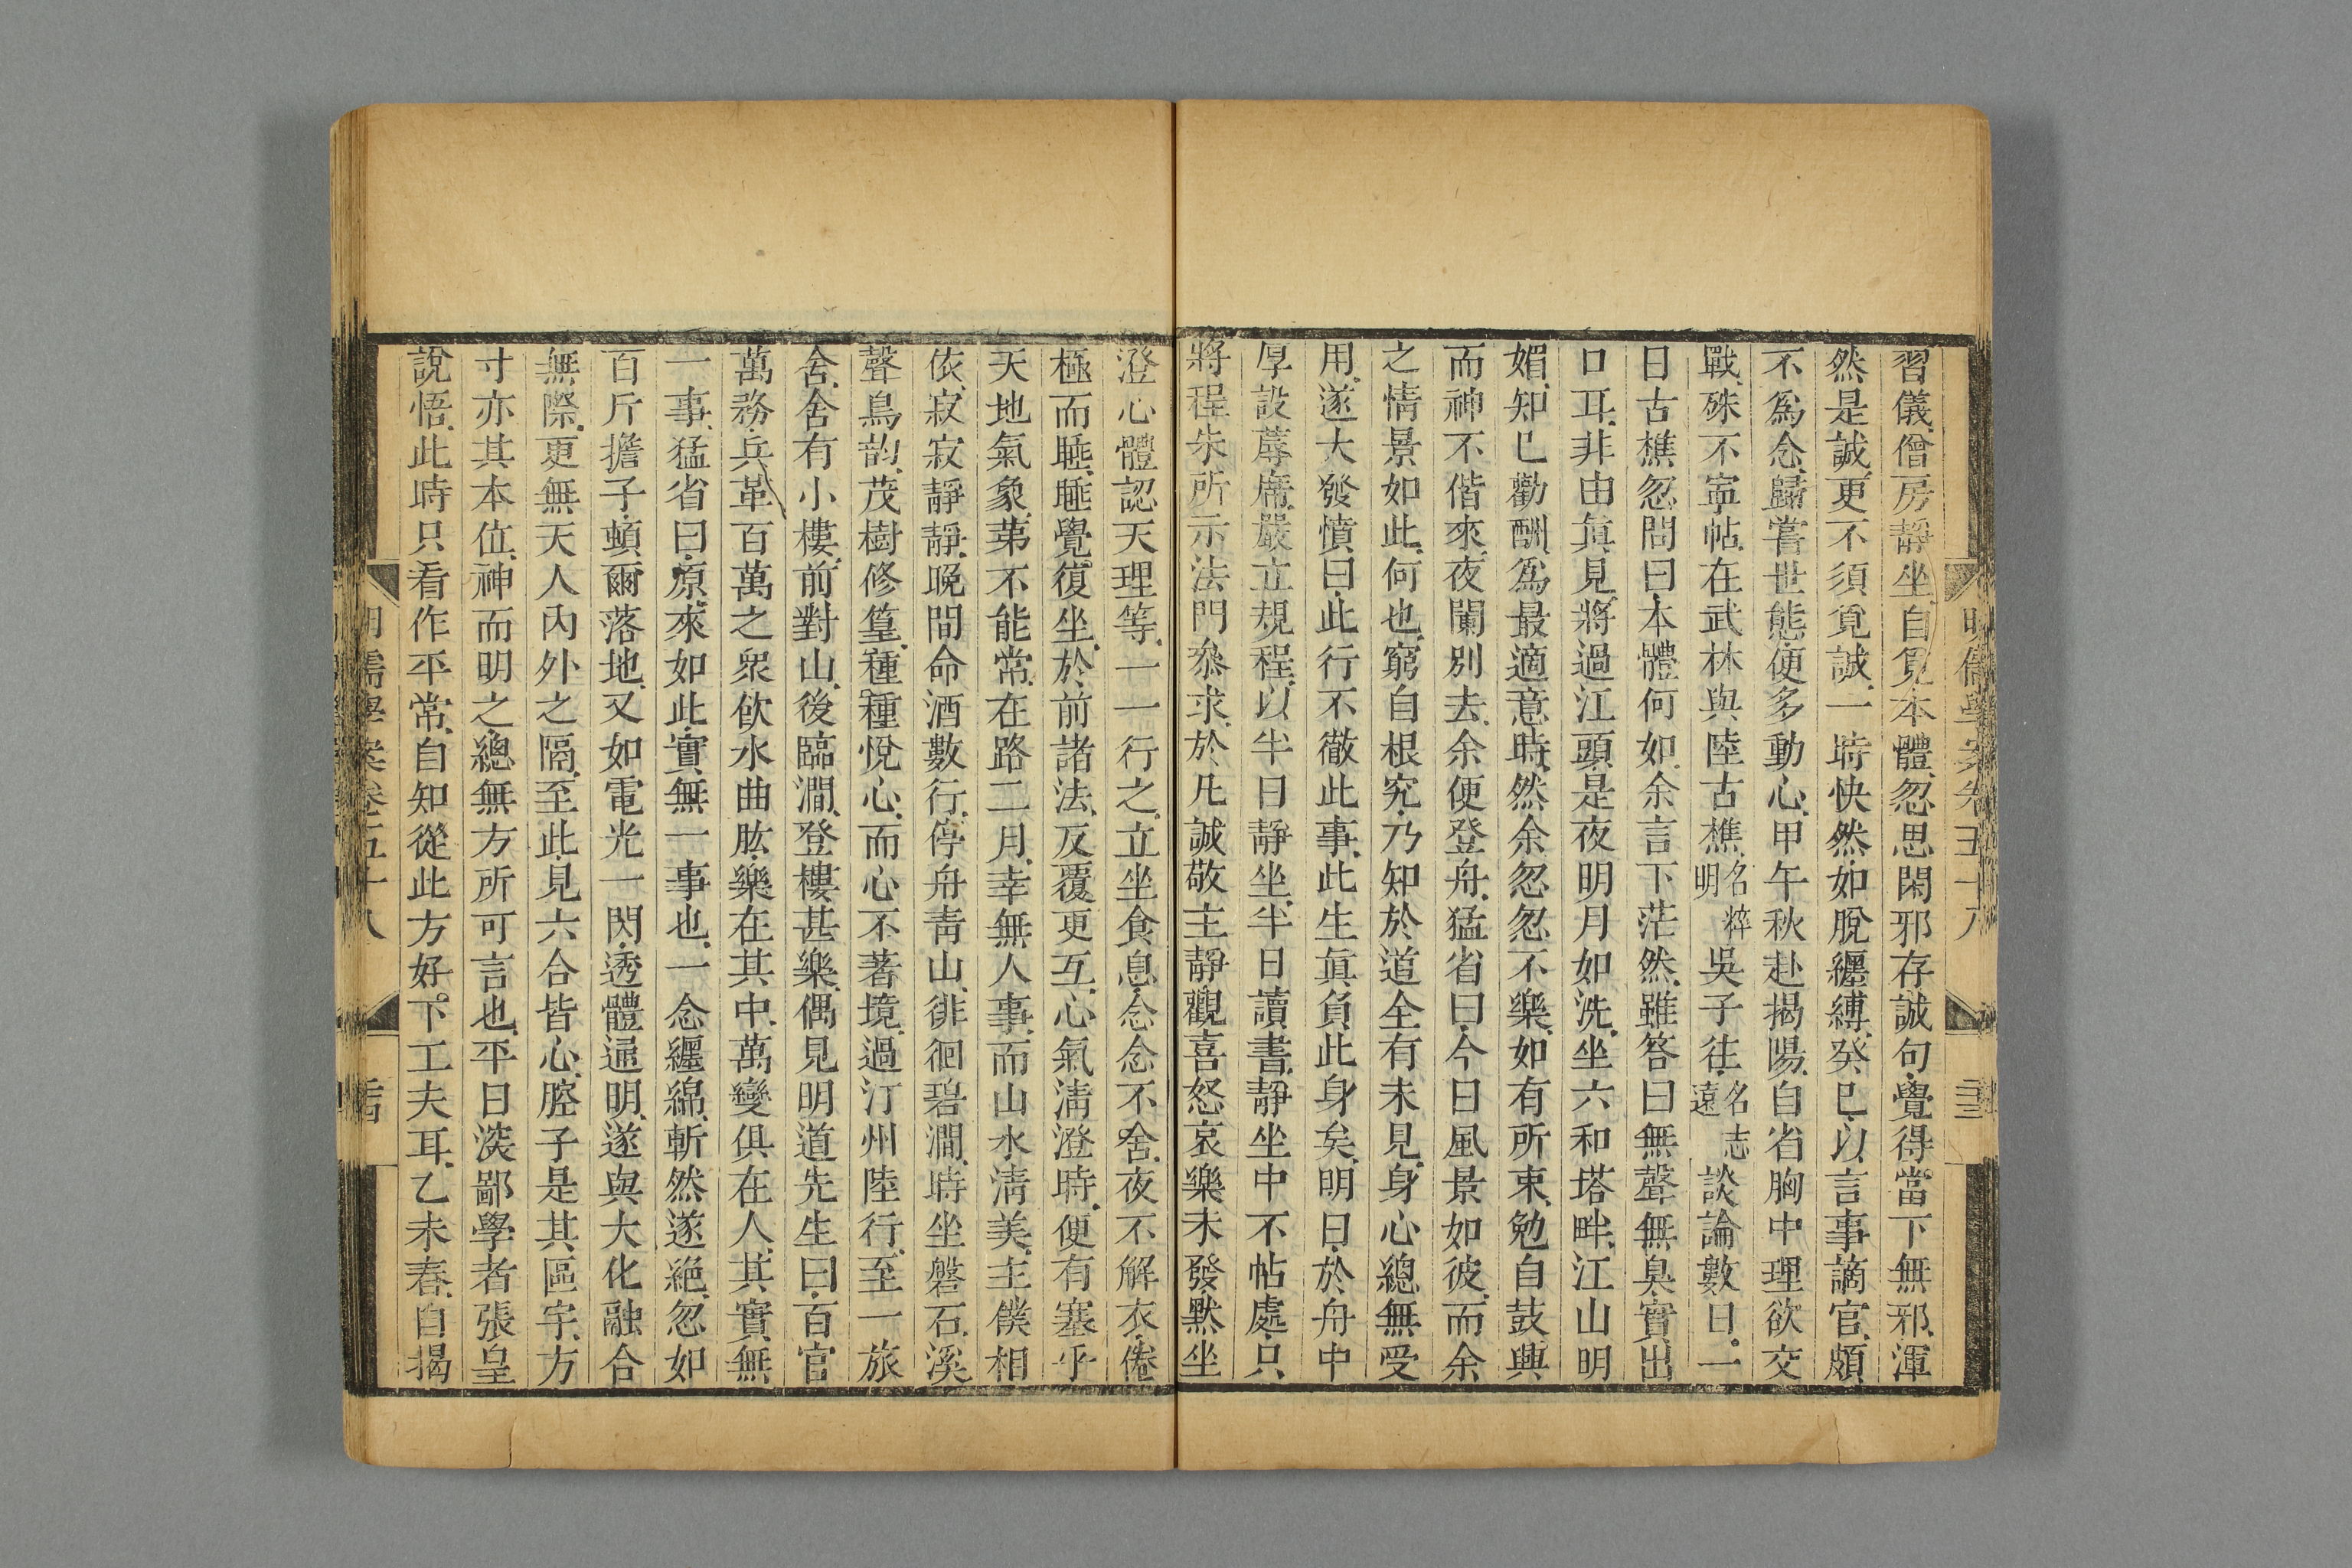 明儒學案卷五十八
習儀僧房靜坐自覓本體忽思閑邪存誠句覺得當下無邪渾
然是誠更不須覓誠一時快然如脫纏縛癸巳以言事謫官頗
不爲念歸嘗世態便多動心甲午秋赴揭陽自省胸中理欲交
戰殊不寧帖在武林與陸古樵名粹明吳子往名志遠談論數日一
日古樵忽問曰本體何如余言下茫然雖答曰無聲無臭實出
口耳非由眞見將過江頭是夜明月如洗坐六和塔畔江山明
媚知已勸酬爲最適意時然余忽忽不樂如有所束勉自鼓興
而神不偕來夜闌別去余便登舟猛省曰今日風景如彼而余
之情景如此何也窮自根究乃知於道全有未見身心總無受
用遂大發憤曰此行不徹此事此生眞負此身矣明日於舟中
厚設蓐席嚴立規程以半日靜坐半日讀書靜坐中不帖處只
將程朱所示法門參求於凡誠敬主靜觀喜怒哀樂未發默坐
澄心體認天理等一一行之立坐食息念念不舍夜不解衣倦
極而睡睡覺復坐於前諸法反覆更互心氣淸澄時便有塞乎
天地氣象第不能常在路二月幸無人事而山水淸美主僕相
依寂寂靜靜晚間命酒數行停舟靑山徘徊碧澗時坐磐石溪
聲鳥韵茂樹修篁種種悅心而心不著境過汀州陸行至一旅
舍舍有小樓前對山後臨澗登樓甚樂偶見明道先生曰百官
萬務兵革百萬之眾飮水曲肱樂在其中萬變俱在人其實無
一事猛省曰原來如此實無一事也一念纏綿斬然遂絕忽如
百斤擔子頓爾落地又如電光一閃透體通明遂與大化融合
無際更無天人內外之隔至此見六合皆心腔子是其區宇方
寸亦其本位神而明之總無方所可言也平日深鄙學者張皇
說悟此時只看作平常自知從此方好下工夫耳乙未春自揭
明儒學案卷五十八